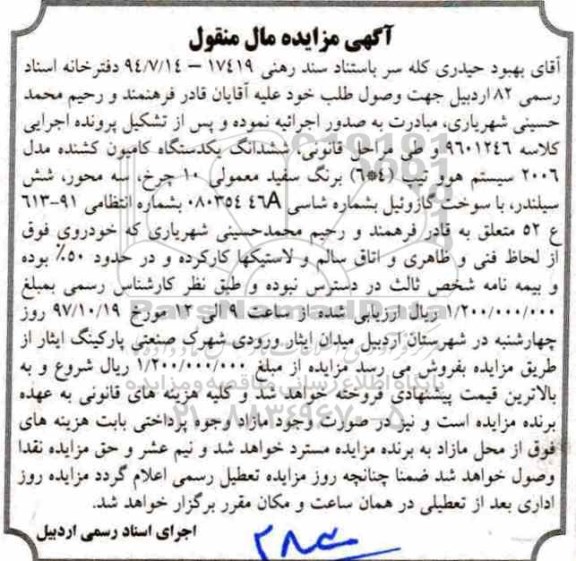 آگهی مزایده مال منقول
آقای بهبود حیدری کله سر باستناد سند رهنی ۱۷۴۱۹ – ۹۴/۷/۱۴ دفترخانه اسناد
رسمی ۸۲ اردبیل جهت وصول طلب خود علیه آقایان قادر فرهنمند و رحیم محمد
حسینی شهریاری، مبادرت به صدور اجرائیه نموده و پس از تشکیل پرونده اجرایی
کلاسه ۹۶۰۱۲۴۶ و طی مراحل قانونی، ششدانگ یکدستگاه کامیون کشنده مدل
۲۰۰۶ سیستم هوو تیپ (۴*۶) برنگ سفید معمولی ۱۰ چرخ، سه محور، شش
سیلندر، با سوخت گازوئیل بشماره شاسی ۰۸۰۳۵۴ ۴۶A بشماره انتظامی ۹۱–۶۱۳
ع ۵۲ متعلق به قادر فرهمند و رحیم محمدحسینی شهریاری که خودروی فوق
از لحاظ فنی و ظاهری و اتاق سالم و لاستیکها کارکرده و در حدود ۵۰٪ بوده
و بیمه نامه شخص ثالث در دسترس نبوده و طبق نظر کارشناس رسمی بمبلغ
۱/۲۰۰/۰۰۰/۰۰۰ ریال ارزیابی شده از ساعت ۹ الی ۱۲ مورخ ۹۷/۱۰/۱۹ روز
چهارشنبه در شهرستان اردبیل میدان ایثار ورودی شهرک صنعتی پارکینگ ایثار از
طریق مزایده بفروش می رسد مزایده از مبلغ ۱/۲۰۰/۰۰۰/۰۰۰ ریال شروع و به
بالاترین قیمت پیشنهادی فروخته خواهد شد و کلیه هزینه های قانونی به عهده
برنده مزایده است و نیز در صورت وجود مازاد وجوه پرداختی بابت هزینه های
فوق از محل مازاد به برنده مزایده مسترد خواهد شد و نیم عشر و حق مزایده نقدا
وصول خواهد شد ضمنا چنانچه روز مزایده تعطیل رسمی اعلام گردد مزایده روز
اداری بعد از تعطیلی در همان ساعت و مکان مقرر برگزار خواهد شد.
اجرای اسناد رسمی اردبیل
ParsNamadData
پایگاه اطلاع رسانی مناقصه و مزایده
۰۲۱-۸۸۳۴۹۶۷۰-۵